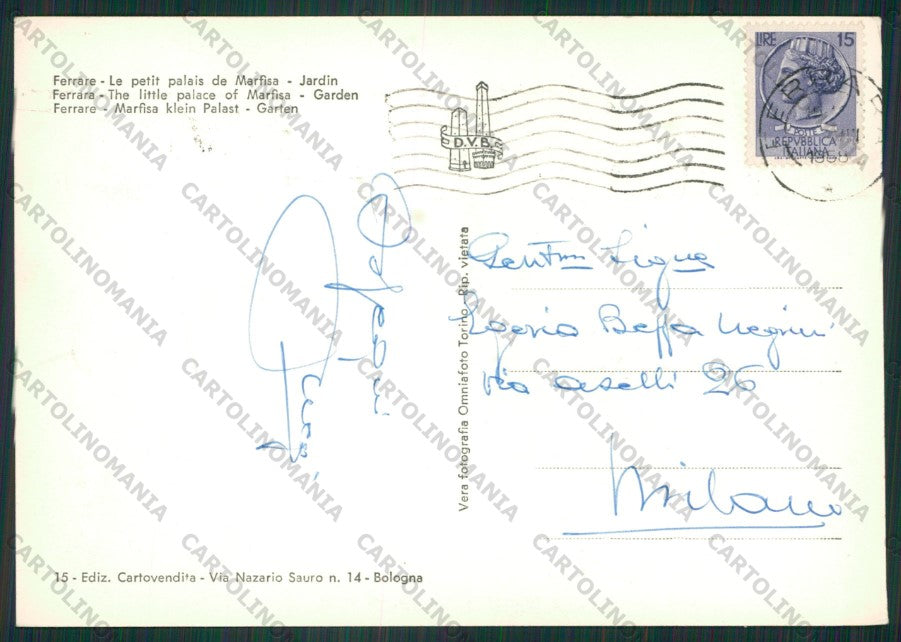 Ferrare - Le petit palais de Marfisa - Jardin
Ferrara - The little palace of Marfisa - Garden
Ferrare - Marfisa klein Palast - Garten
D.V.B.
LIRE 15
POSTE
REPVBBLICA
ITALIANA
Gent.ma Sig.na
Beffa Negrini
via Aselli 26
Milano
Vera fotografia Omniafoto Torino - Rip. vietata
15 - Ediz. Cartovendita - Via Nazario Sauro n. 14 - Bologna
CARTOLINOMANIA